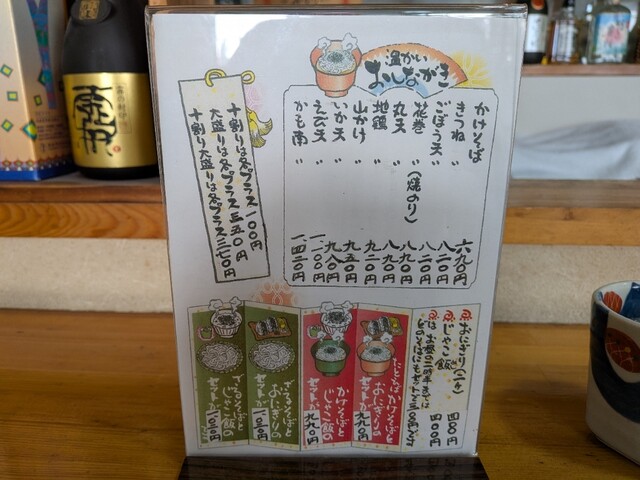 温かい
おしながき
かけそば 六九〇円
きつね〃 八二〇円
ごぼう天〃 八二〇円
花巻〃(焼のり) 八九〇円
丸天〃 八九〇円
地鶏〃 九二〇円
山かけ〃 九五〇円
いか天〃 九八〇円
えび天〃 一一〇〇円
かも南〃 一四二〇円
十割りは各プラス一〇〇円
大盛りは各プラス三五〇円
十割り大盛りは各プラス三七〇円
おにぎり(二ヶ) 四〇〇円
じゃこ飯 四〇〇円
たとえばかけそばとおにぎりのセットが九九〇円
かけそばとじゃこ飯のセットが九九〇円
ざるそばとおにぎりのセットが一〇一〇円
ざるそばとじゃこ飯のセットが一〇一〇円